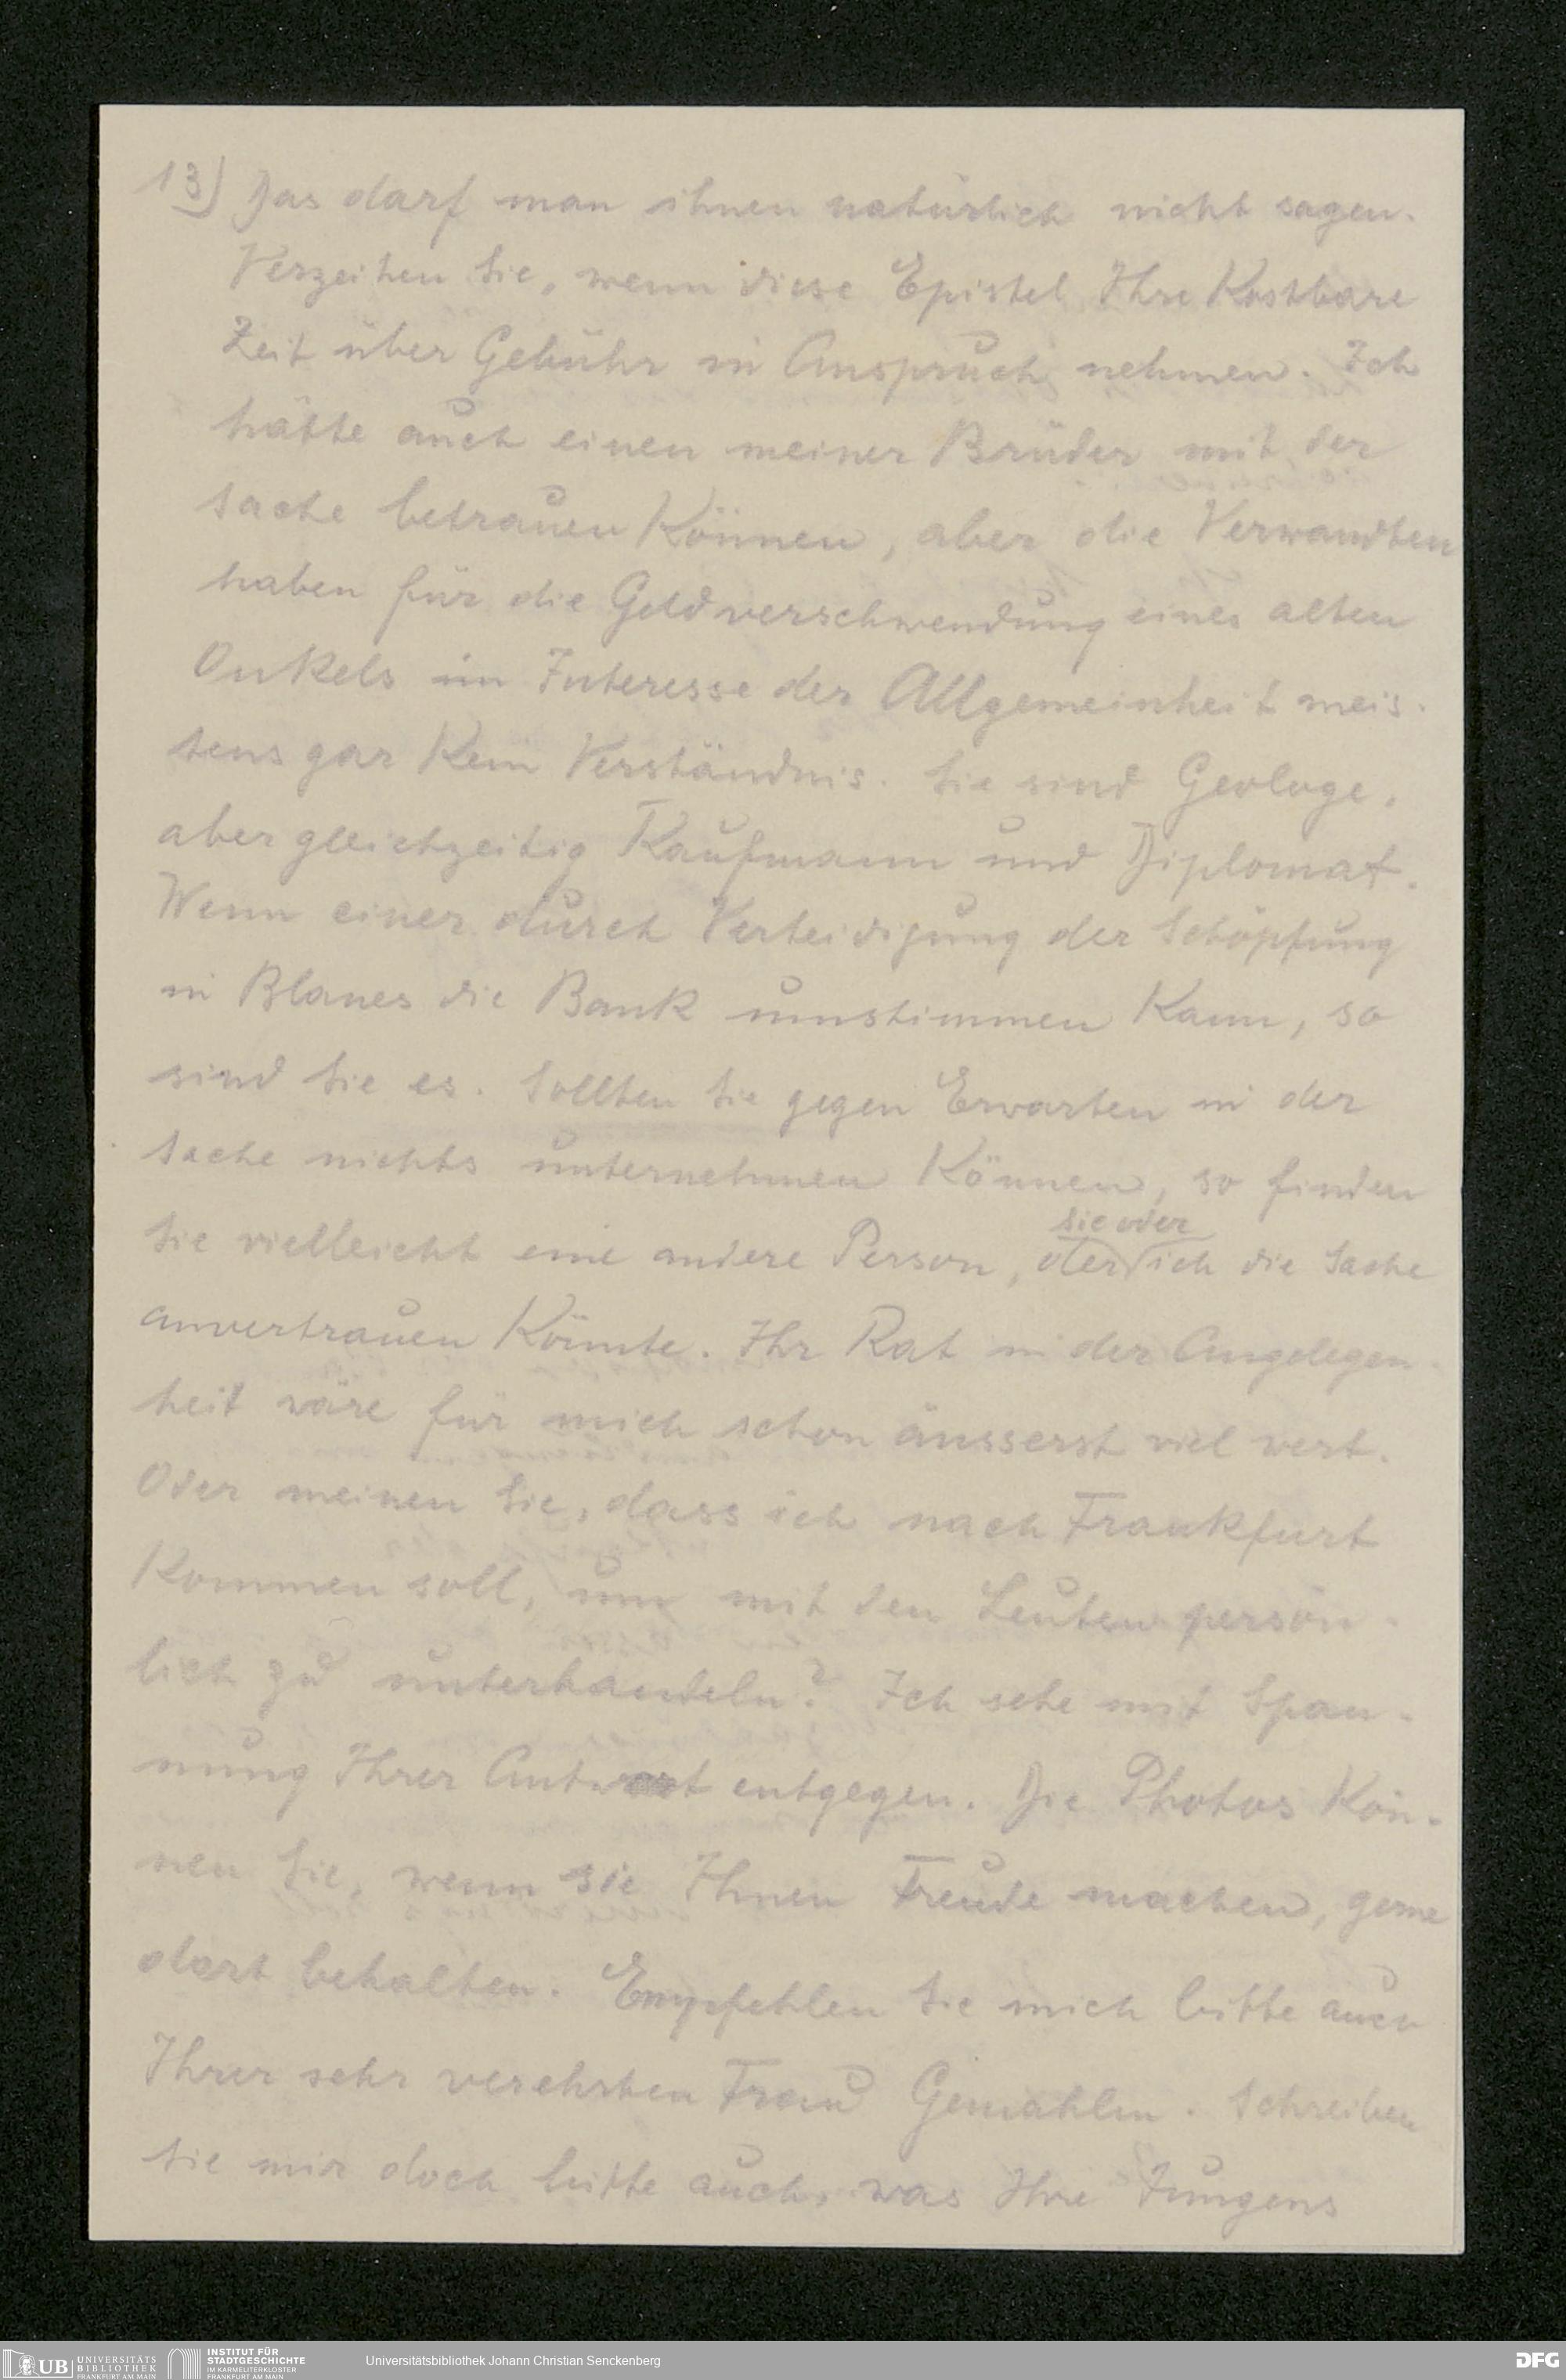 13) Das darf man ihnen natürlich nicht sagen.
Verzeihen Sie, wenn diese Epistel Ihre Kostbare
Zeit über Gebühr in Anspruch nehmen. Ich
hätte auch einen meiner Brüder mit der
Sache betrauen Können, aber die Verwandten
haben für die Geldverschwendung eines alten
Onkels im Interesse der Allgemeinheit meis-
tens gar Kein Verständnis. Sie sind Geologe,
aber gleichzeitig Kaufmann und Diplomat.
Wenn einer durch Verteidigung der Schöpfung
in Blanes die Bank umstimmen Kann, so
sind Sie es. Sollten Sie gegen Erwarten in der
Sache nichts unternehmen Können, so finden
sie oder
Sie vielleicht eine andere Person, der ich die Sache
anvertrauen Könnte. Ihr Rat in der Angelegen-
heit wäre für mich schon äusserst viel wert.
Oder meinen Sie, dass ich nach Frankfurt
Kommen soll, um mit den Leuten persön-
lich zu unterhandeln? Ich sehe mit Span-
nung Ihrer Antwort entgegen. Die Photos Kön-
nen Sie, wenn sie Ihnen Freude machen, gerne
dort behalten. Empfehlen Sie mich bitte auch
Ihrer sehr verehrten Frau Gemahlin. Schreiben
Sie mir doch bitte auch, was Ihre Jungens
UB UNIVERSITÄTS
BIBLIOTHEK
FRANKFURT AM MAIN
INSTITUT FÜR
STADTGESCHICHTE
IM KARMELITERKLOSTER
FRANKFURT AM MAIN
Universitätsbibliothek Johann Christian Senckenberg
DFG